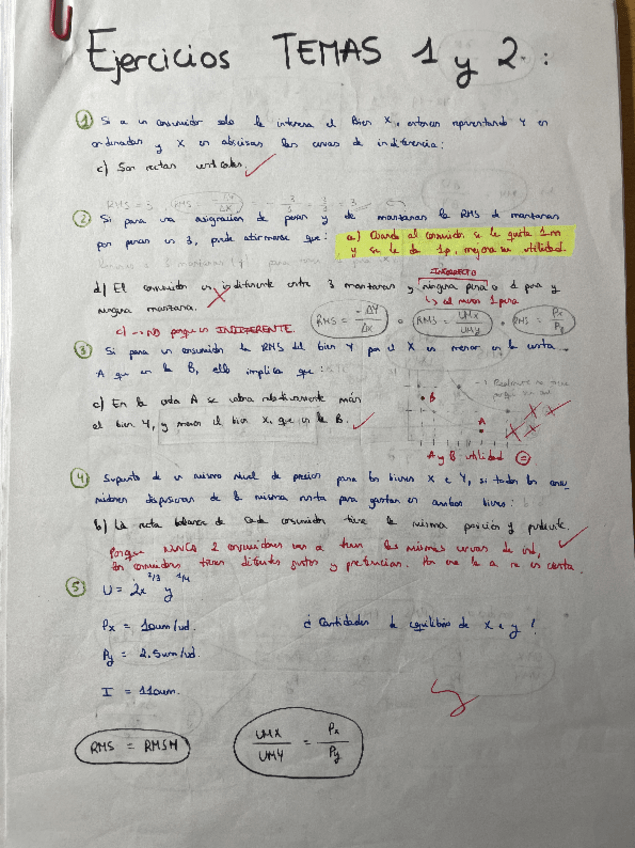 Ejercicios TEMAS 1 y 2 :
① Si a un consumidor solo le interesa el Bien X, entonces representando Y en
ordenadas y X en abscisas las curvas de indiferencia:
c) Son rectas verticales.
RMS = 3
② Si para una asignación de peras y de manzanas la RMS de manzanas
por peras es 3, puede afirmarse que: a) Cuando al consumidor se le quita 1m
y se le da 1p, mejora su utilidad
INCORRECTO
d) El consumidor es indiferente entre 3 manzanas y ninguna pera o 1 pera y
ninguna manzana.
↳ al menos 1 pera
RMS = -ΔY/Δx • RMS = UMx/UMy • RMS = Px/Py
c) → NO porque es INDIFERENTE.
③ Si para un consumidor la RMS del bien Y por el X es menor en la cesta
A que en la B, ello implica que:
c) En la cesta A se valora relativamente más
el bien Y, y menos el bien X, que en la B.
B
A
A y B utilidad =
④ Supuesto de un mismo nivel de precios para los bienes X e Y, si todos los consu-
midores dispusieran de la misma renta para gastar en ambos bienes:
b) La recta balance de cada consumidor tiene la misma posición y pendiente.
Porque NUNCA 2 consumidores van a tener las mismas curvas de ind,
los consumidores tienen distintos gustos y preferencias.
⑤ U = 2x^2/3 y^1/4
Px = 10um/ud.
¿ Cantidades de equilibrio de x e y ?
Py = 2.5um/ud.
I = 110um.
RMS = RMSM
UMX/UMY = Px/Py